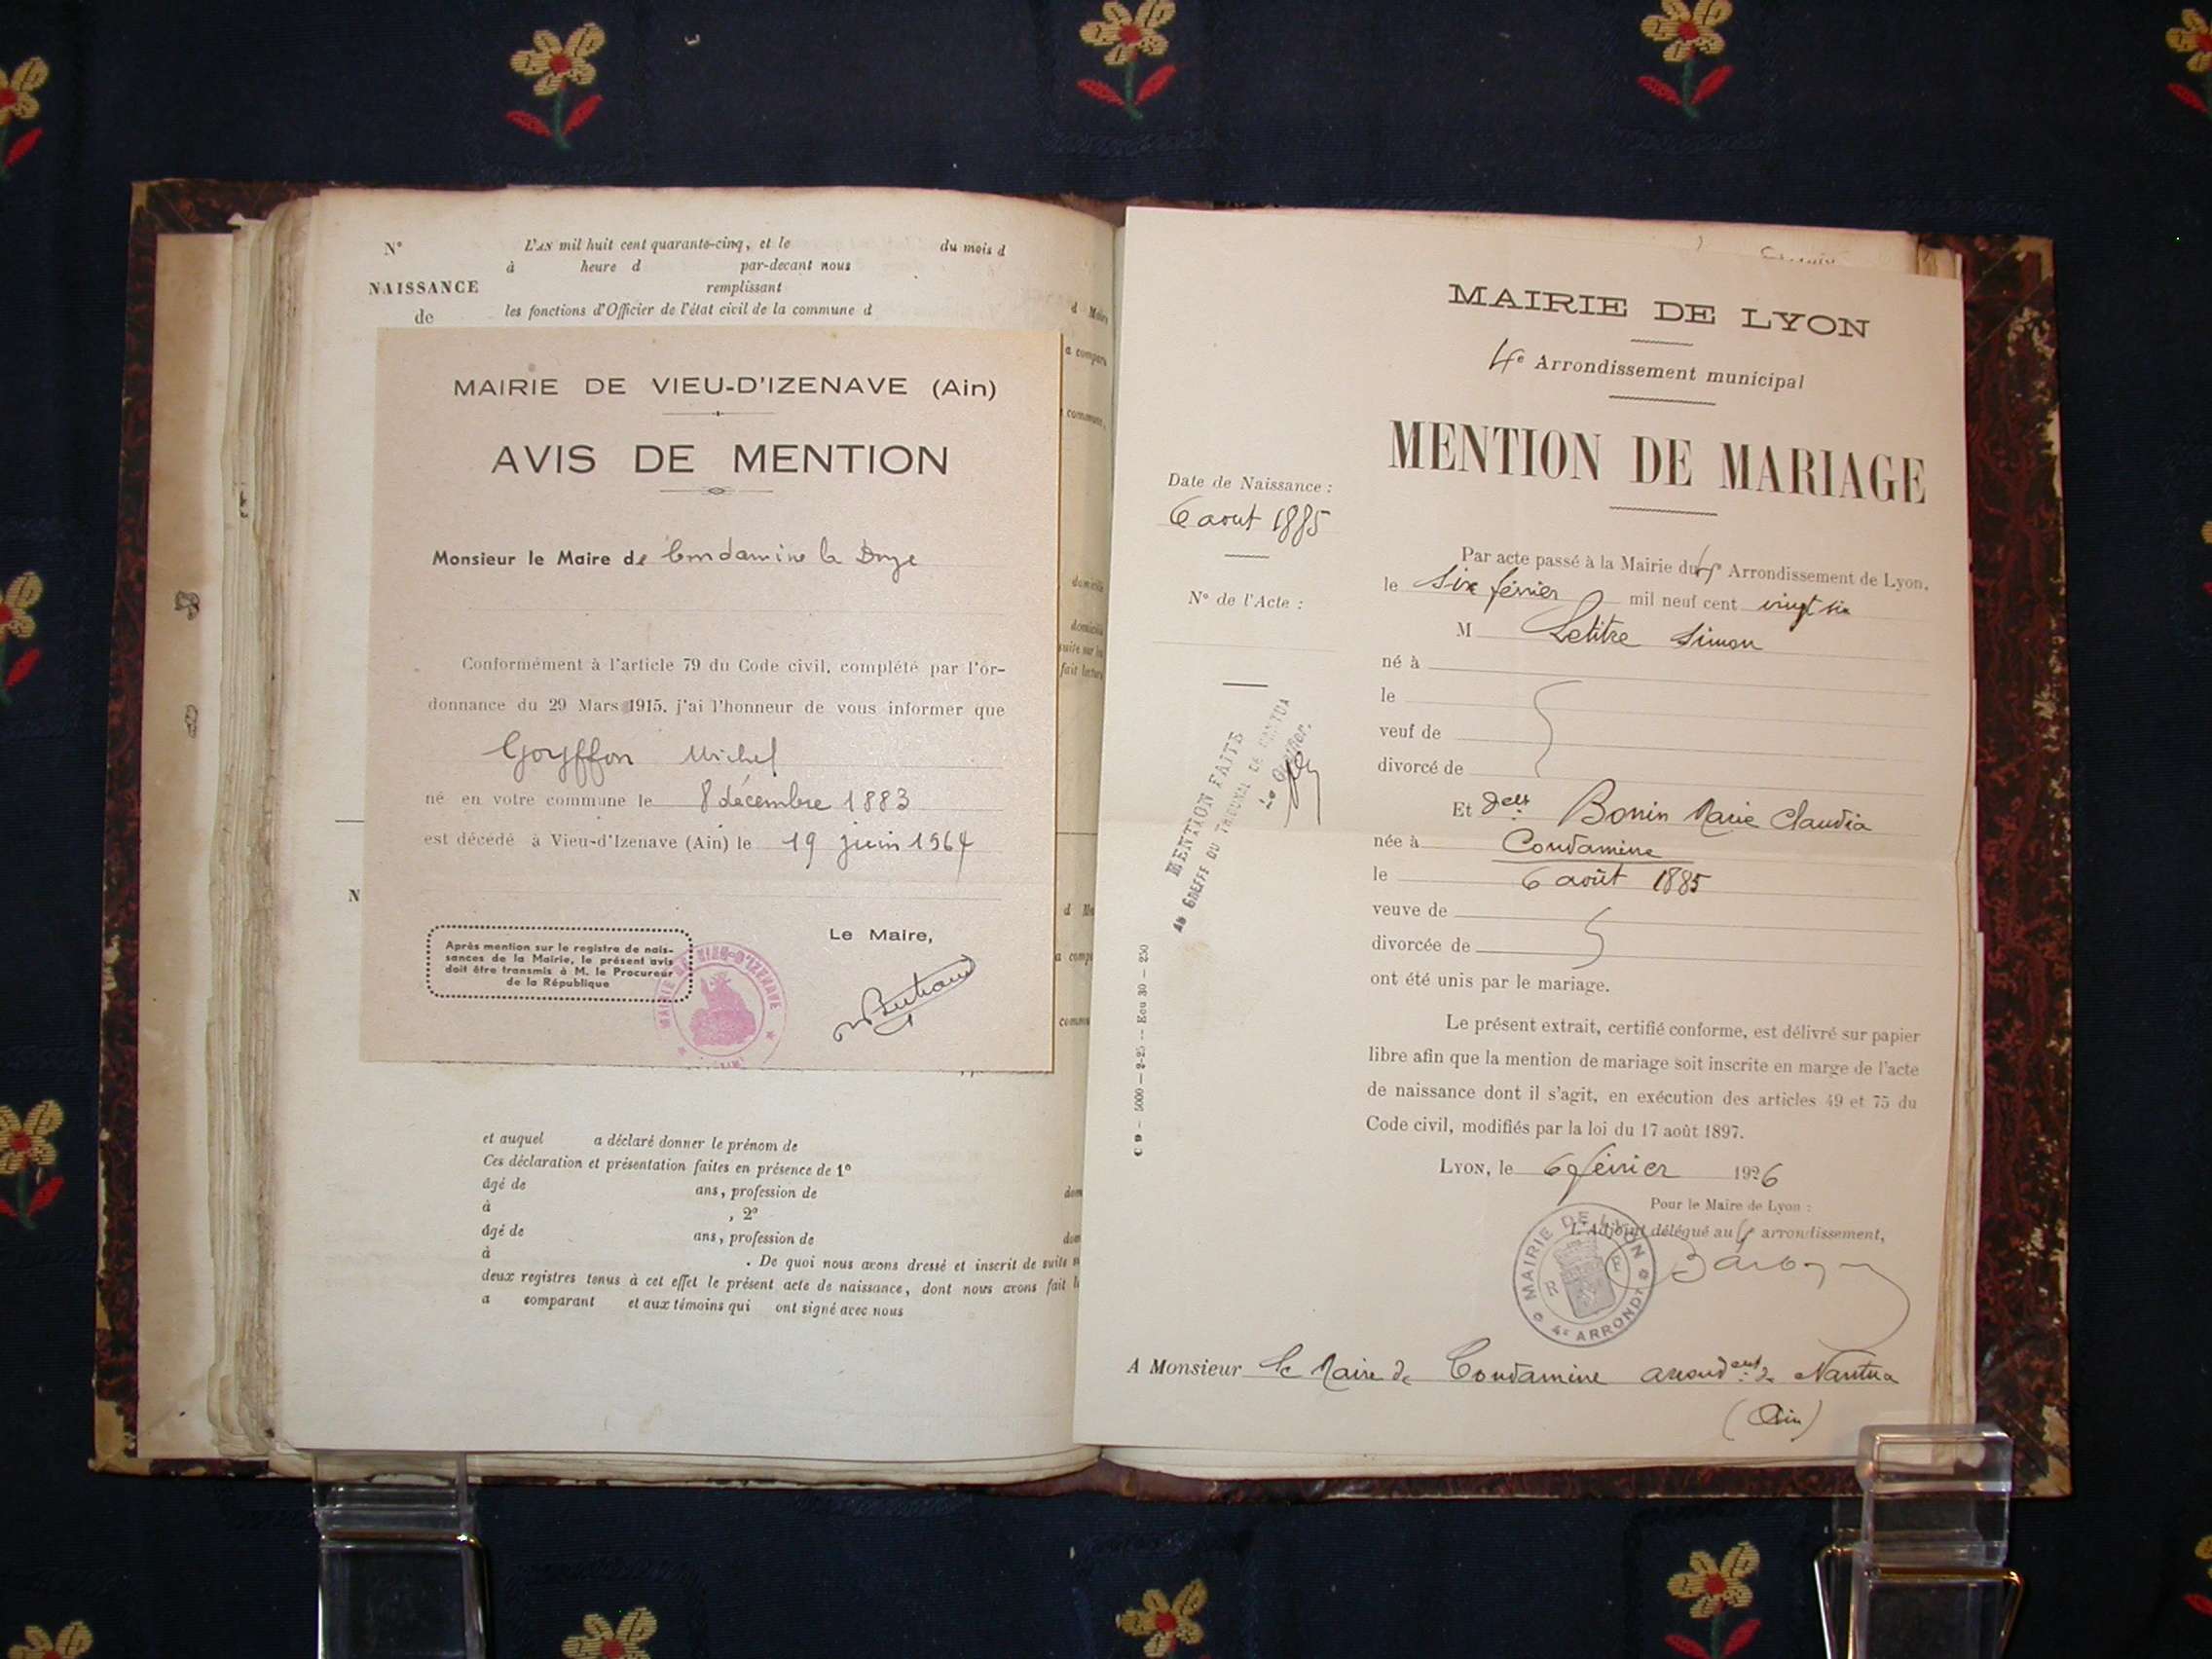 N°
NAISSANCE
de
L'AN mil huit cent quarante-cinq, et le du mois d
à heure d par-devant nous
remplissant
les fonctions d'Officier de l'état civil de la commune d
MAIRIE DE VIEU-D'IZENAVE (Ain)
AVIS DE MENTION
Monsieur le Maire de Condamine la Doye
Conformément à l'article 79 du Code civil, complété par l'or-
donnance du 29 Mars 1915, j'ai l'honneur de vous informer que
Goyffon Michel
né en votre commune le 8 décembre 1883
est décédé à Vieu-d'Izenave (Ain) le 19 juin 1964
Le Maire,
Après mention sur le registre de nais-
sances de la Mairie, le présent avis
doit être transmis à M. le Procureur
de la République
MAIRIE DE VIEU-D'IZENAVE
N
et auquel a déclaré donner le prénom de
Ces déclaration et présentation faites en présence de 1°
âgé de ans, profession de
à , 2°
âgé de ans, profession de
à . De quoi nous avons dressé et inscrit de suite
deux registres tenus à cet effet le présent acte de naissance, dont nous avons fait
a comparant et aux témoins qui ont signé avec nous
MAIRIE DE LYON
4e Arrondissement municipal
MENTION DE MARIAGE
Date de Naissance :
6 aout 1885
N° de l'Acte :
MENTION FAITE
AU GREFFE DU TRIBUNAL DE NANTUA
Le Greffier,
C 9 - 5000 - 2-25 -- Ecu 30 - 250
Par acte passé à la Mairie du 4e Arrondissement de Lyon,
le Six février mil neuf cent vingt six
M Letitre Simon
né à
le
veuf de
divorcé de
Et Delle Bonin Marie Claudia
née à Condamine
le 6 août 1885
veuve de
divorcée de
ont été unis par le mariage.
Le présent extrait, certifié conforme, est délivré sur papier
libre afin que la mention de mariage soit inscrite en marge de l'acte
de naissance dont il s'agit, en exécution des articles 49 et 75 du
Code civil, modifiés par la loi du 17 août 1897.
LYON, le 6 février 1926
Pour le Maire de Lyon :
L'Adjoint délégué au 4 arrondissement,
MAIRIE DE LYON
R F
4e ARRONDt
A Monsieur le Maire de Condamine arrondent de Nantua
(Ain)